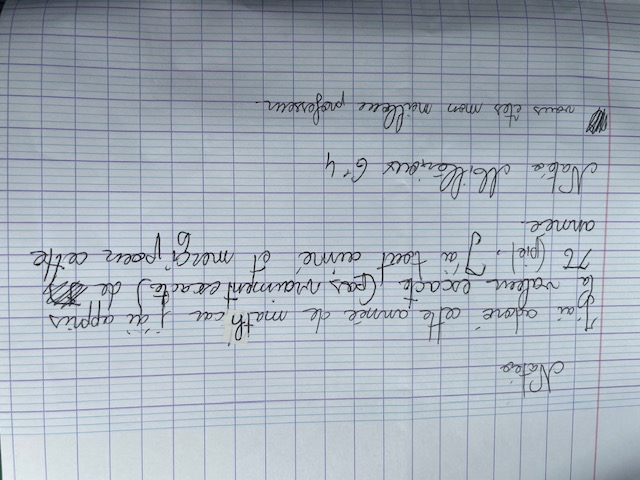 Natéo
J'ai adoré cette année de math car j'ai appris
la valeur exacte (pas vraiment exacte) de
π (pie). J'ai tout aimé et merci pour cette
année.
Natéo Millérioux 6e4
vous êtes mon meilleur professeur.